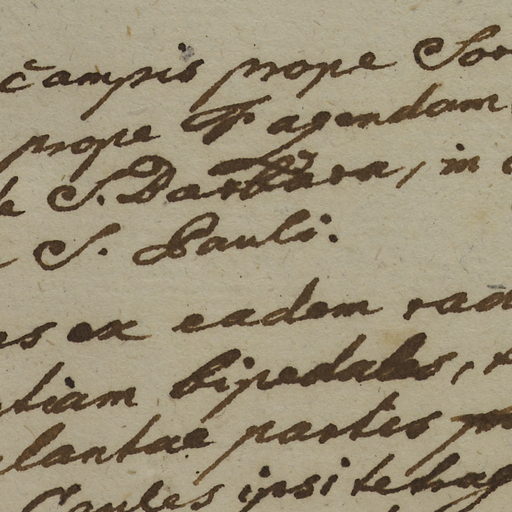 campis prope Sor
prope Fazendam
de S. Barbara, in
S. Pauli.
es ex eadem rad
tiam bipedales,
plantae partes
Caules ipsi tetrag